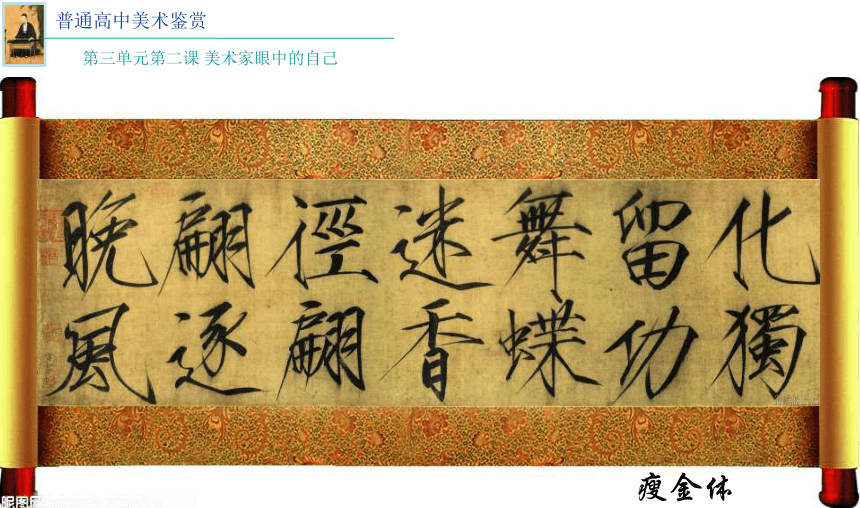 普通高中美术鉴赏
第三单元第二课 美术家眼中的自己
化獨
留功
舞蝶
迷香
徑翩
翩逐
晚風
瘦金体
昵图网